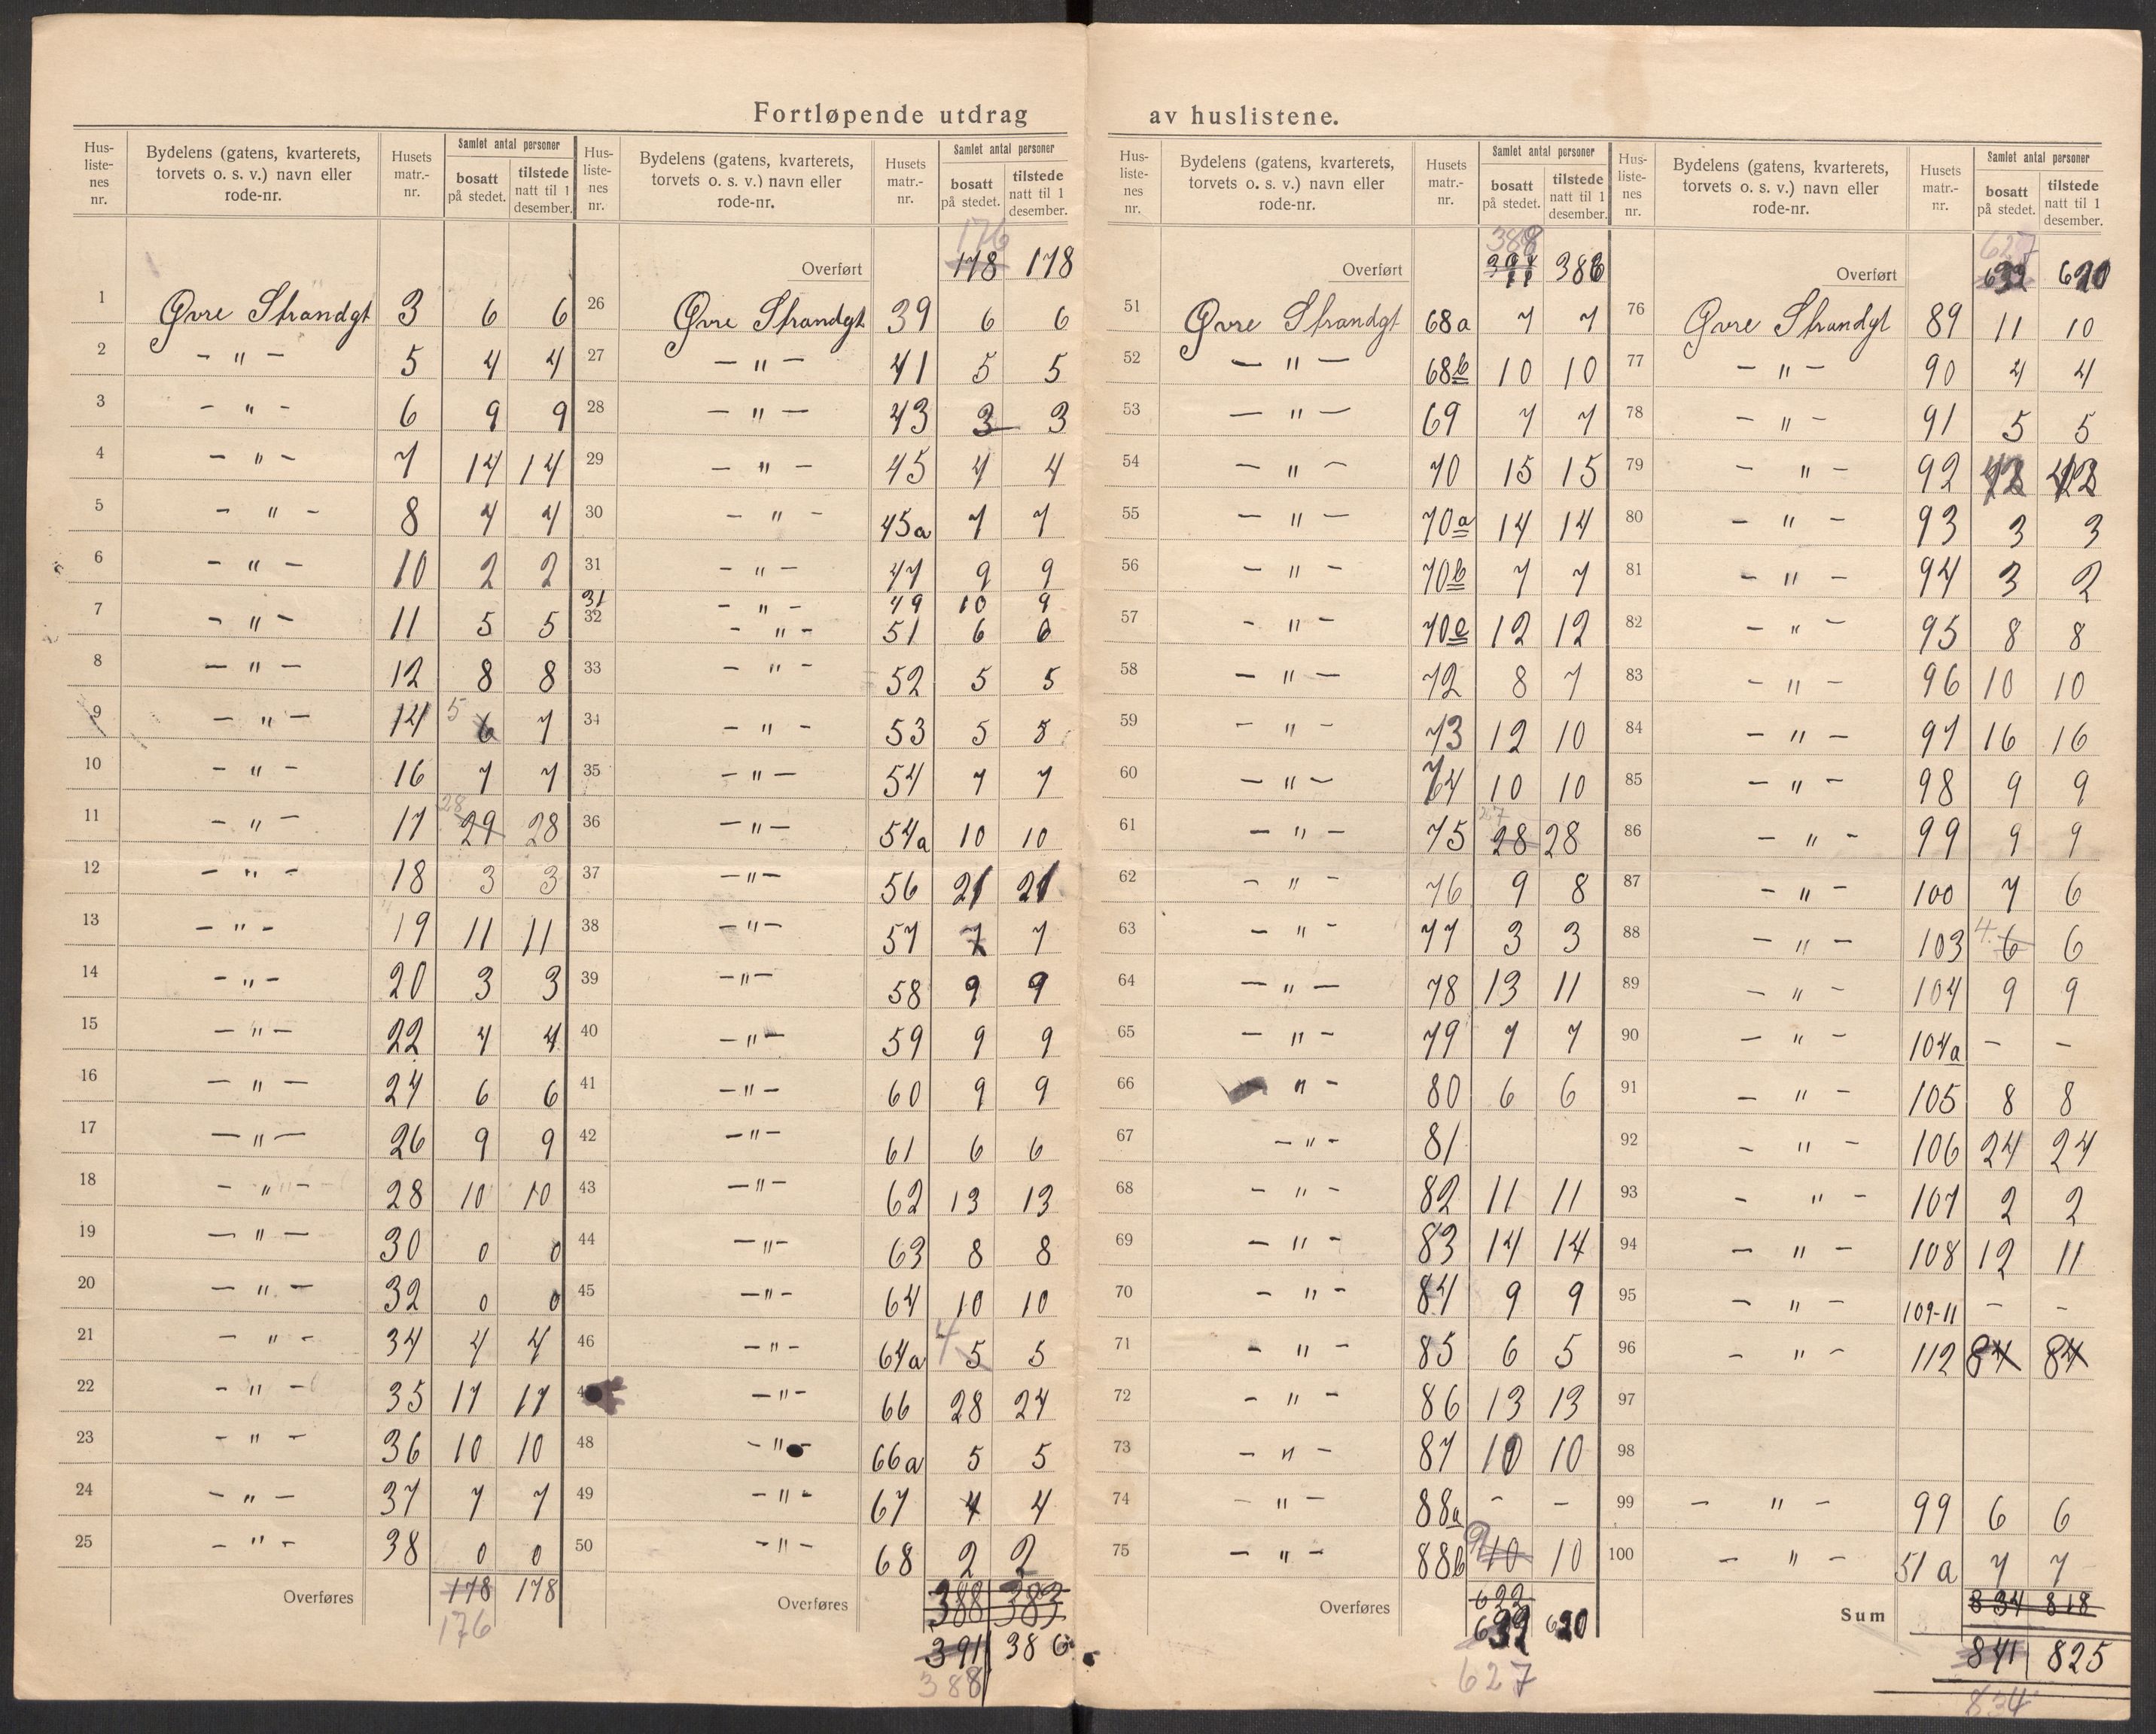 Fortløpende utdrag av huslistene.
Hus-listenes nr. | Bydelens (gatens, kvarterets, torvets o. s. v.) navn eller rode-nr. | Husets matr.-nr. | Samlet antal personer bosatt på stedet. | tilstede natt til 1 desember.
1 Øvre Strandgt 3 6 6
2 – " – 5 4 4
3 – " – 6 9 9
4 – " – 7 14 14
5 – " – 8 4 4
6 – " – 10 2 2
7 – " – 11 5 5
8 – " – 12 8 8
9 – " – 14 5 6 7
10 – " – 16 7 7
11 – " – 17 28 29 28
12 – " – 18 3 3
13 – " – 19 11 11
14 – " – 20 3 3
15 – " – 22 4 4
16 – " – 24 6 6
17 – " – 26 9 9
18 – " – 28 10 10
19 – " – 30 0 0
20 – " – 32 0 0
21 – " – 34 4 4
22 – " – 35 17 17
23 – " – 36 10 10
24 – " – 37 7 7
25 – " – 38 0 0
Overføres 178 178
176
Hus-listenes nr. | Bydelens (gatens, kvarterets, torvets o. s. v.) navn eller rode-nr. | Husets matr.-nr. | Samlet antal personer bosatt på stedet. | tilstede natt til 1 desember.
176
Overført 178 178
26 Øvre Strandgt 39 6 6
27 – " – 41 5 5
28 – " – 43 3 3
29 – " – 45 4 4
30 – " – 45a 7 7
31 – " – 47 9 9
31 – " – 49 10 9
32 – " – 51 6 6
33 – " – 52 5 5
34 – " – 53 5 5
35 – " – 54 7 7
36 – " – 54a 10 10
37 – " – 56 21 21
38 – " – 57 7 7
39 – " – 58 9 9
40 – " – 59 9 9
41 – " – 60 9 9
42 – " – 61 6 6
43 – " – 62 13 13
44 – " – 63 8 8
45 – " – 64 10 10
46 – " – 64a 4 5 5
4 – " – 66 28 24
48 – " – 66a 5 5
49 – " – 67 4 4
50 – " – 68 2 2
Overføres 388 383
391 386
388
Hus-listenes nr. | Bydelens (gatens, kvarterets, torvets o. s. v.) navn eller rode-nr. | Husets matr.-nr. | Samlet antal personer bosatt på stedet. | tilstede natt til 1 desember.
388
Overført 391 386
51 Øvre Strandgt 68a 7 7
52 – " – 68b 10 10
53 – " – 69 7 7
54 – " – 70 15 15
55 – " – 70a 14 14
56 – " – 70b 7 7
57 – " – 70c 12 12
58 – " – 72 8 7
59 – " 73 12 10
60 – " – 74 10 10
61 – " – 75 27 28 28
62 – " – 76 9 8
63 – " – 77 3 3
64 – " – 78 13 11
65 – " – 79 7 7
66 – " – 80 6 6
67 – " – 81
68 – " – 82 11 11
69 – " – 83 14 14
70 – " – 84 9 9
71 – " – 85 6 5
72 – " – 86 13 13
73 – " – 87 10 10
74 – " – 88a – –
75 – " – 88b 9 10 10
622
Overføres 632 620
627
Hus-listenes nr. | Bydelens (gatens, kvarterets, torvets o. s. v.) navn eller rode-nr. | Husets matr.-nr. | Samlet antal personer bosatt på stedet. | tilstede natt til 1 desember.
627
Overført 632 620
76 Øvre Strandgt 89 11 10
77 – " – 90 4 4
78 – " – 91 5 5
79 – " – 92
80 – " – 93 3 3
81 – " – 94 3 2
82 – " – 95 8 8
83 – " – 96 10 10
84 – " – 97 16 16
85 – " – 98 9 9
86 – " – 99 9 9
87 – " – 100 7 6
88 – " – 103 4 6 6
89 – " – 104 9 9
90 – " – 104a – –
91 – " – 105 8 8
92 – " – 106 24 24
93 – " – 107 2 2
94 – " – 108 12 11
95 – " – 109-11 – –
96 – " – 112 84 84
97
98
99 – " – 99 6 6
100 – " – 51a 7 7
Sum 834 818
841 825
834